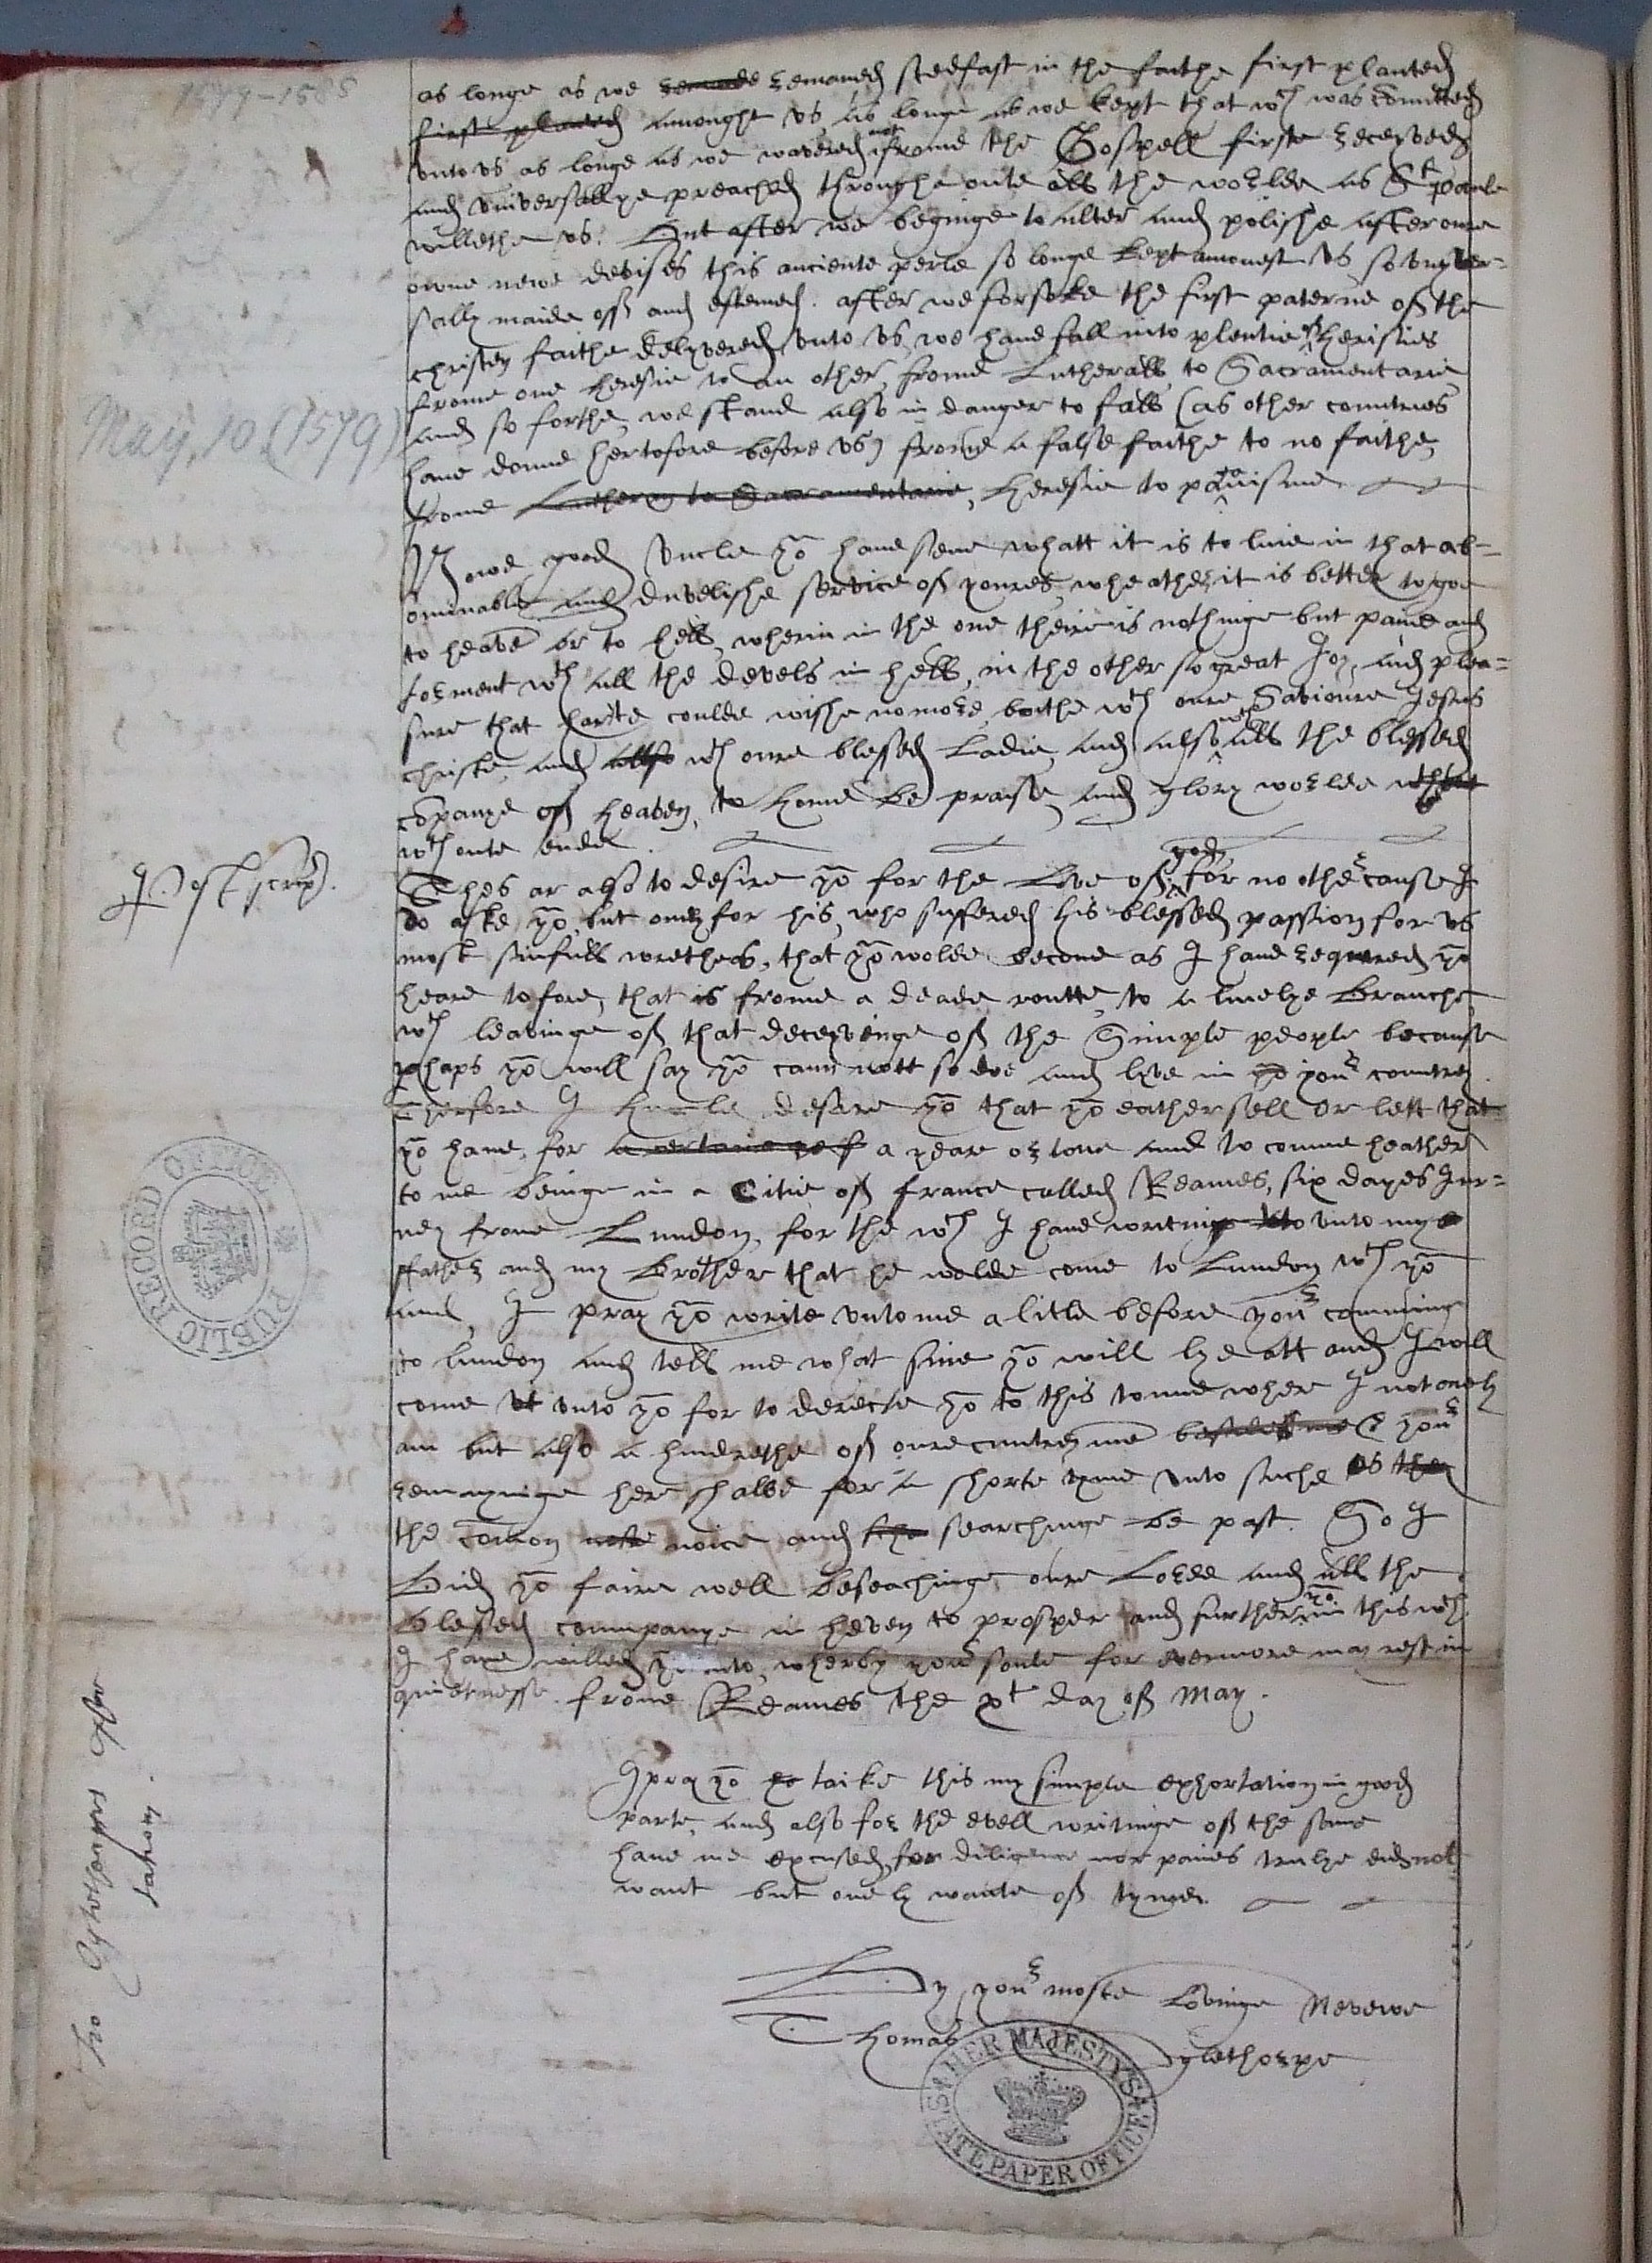 1579-1585
as longe as we remade remaned stedfast in the faithe first planted
first planted amonght vs as longe as we kept that wch was comitted
vnto vs as longe as we wavered not frome the Gospell firste receyved
and vniversallye preached throughe oute all the worlde as St paule
willethe vs. But after we beginge to alter and polishe after oure
owne newe devises this anciente perle so longe kept amonest vs so vnyver=
sally maide off and estemed. after we forsoke the first paterne off the
christen faithe delyvered vnto vs, we haue fall into plentie off herisies
frome one heresie to an other, frome Lutherall to Sacramentarie
and so forthe, we stand also in danger to fall (as other contries
haue donne hertofore before vs) frome a false faithe to no faithe
frome Lutheran to Sacramentarie, heresie to paganisme
May, 10 (1579)
Nowe good Vncle yo haue sene whatt it is to liue in that ab=
ominable and duvelishe service off youres, wheather it is better to goe
to heave or to hell, wherin in the one theire is nothinge but paine and
torment wth all the devels in hell, in the other so great Joy, and plea=
sure that harte coulde wishe no more, bothe wth oure Savioure Jesus
christe, and allso wth oure blessed Ladie, and also wth all the blessed
copanye off heaven, to home be praise and glory worlde
wth oute ende.
Postscrip.
Thes ar also to desire yo for the Love off god for no other cause I
do aske yo, but onely for his, who suffered his blessed passion for vs
most sinfull wretheas, that yo wolde become as I haue requered yo
heare tofore, that is frome a deade routte, to a livelye branche
wth leavinge off that deceyvenge off the Simple people because
phaps yo will say yo cann nott so doe and lyve in yo your countrey.
Therfore I humle desire yo that yo eather sell or lett that
yo haue, for a certaine off a yeare or tow and to comme heather
to me beinge in a Citie off france called Reames, six dayes Jur=
ney frome London, for the wch I haue writing vnto my
ffather and my brother that he wolde come to London wth yo
and, I pray yo write vnto me a litle before your comminge
to london and tell me what sine yo will lye att and I will
come vt vnto yo for to derecte yo to this towne where I not onely
am but also a hundrethe off oure cuntrey me besides me & your
remayninge here shalbe for a shorte tyme vnto suche as they
the comon note noice and the searchinge be past. So I
Bid yo faire well beseachinge oure Lorde and all the
blessed compayne in heven to prosper and further yo in this wch
I haue willed yo vnto, wherby your soule for evermore may rest in
quietnesse. frome Reames the xt day off May.
I pray yo to taike this my simple exhortation in good
parte, and also for the evell writinge off the same
haue me excused, for diligence nor paines trulye did not
want but onely wante off tyme.
By your moste Lovinge Nevewe
Thomas Oglethorpe
PUBLIC RECORD OFFICE
HER MAJESTY'S STATE PAPER OFFICE